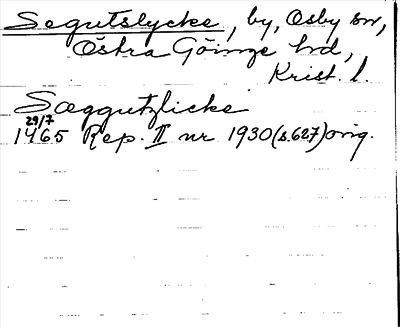 Segutslycke, by, Osby sn,
Östra Göinge hd,
Krist. l.
Sæggutzlicke
29/7
1465 Rep. II nr 1930 (s. 627) orig.